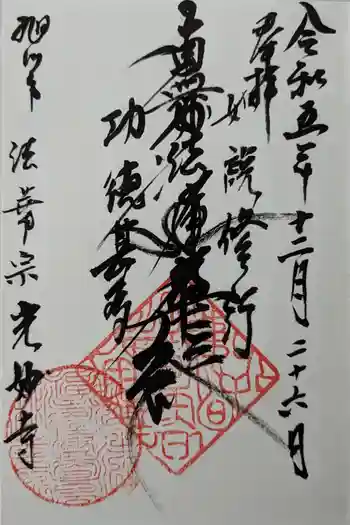 令和五年十二月二十六月
奉拝
如説修行
南無妙法蓮華経
功徳甚多
旭川市 法華宗 光妙寺